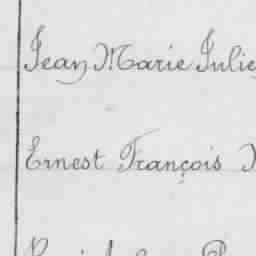 Jean Marie Julie
Ernest François